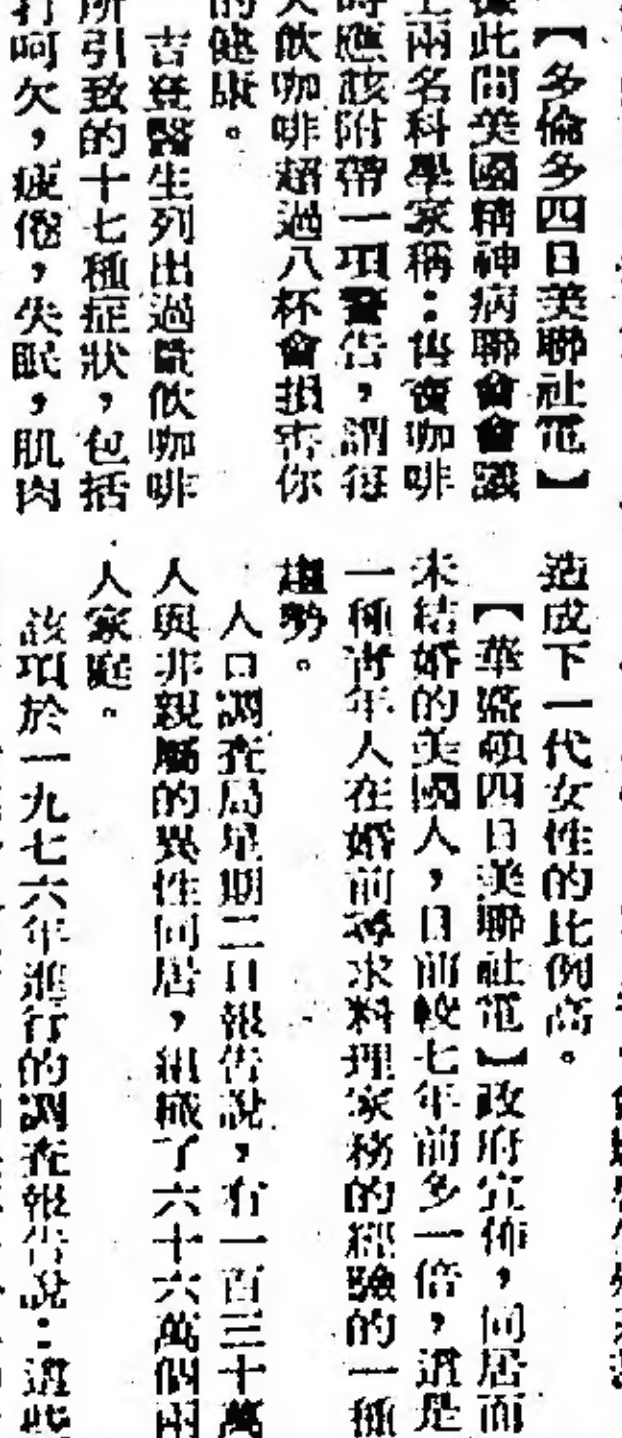 【多倫多四日美聯社電】
據此間美國精神病聯會會議
上兩名科學家稱：售賣咖啡
時應該附帶一項警告，謂每
天飲咖啡超過八杯會損害你
的健康。
吉登醫生列出過量飲咖啡
所引致的十七種症狀，包括
打呵欠，疲倦，失眠，肌肉
造成下一代女性的比例高。
【華盛頓四日美聯社電】政府宣佈，同居而
未結婚的美國人，目前較七年前多一倍，這是
一種青年人在婚前尋求料理家務的經驗的一種
趨勢。
人口調查局星期二日報告說，有一百三十萬
人與非親屬的異性同居，組織了六十六萬個兩
人家庭。
該項於一九七六年進行的調查報告說：這些